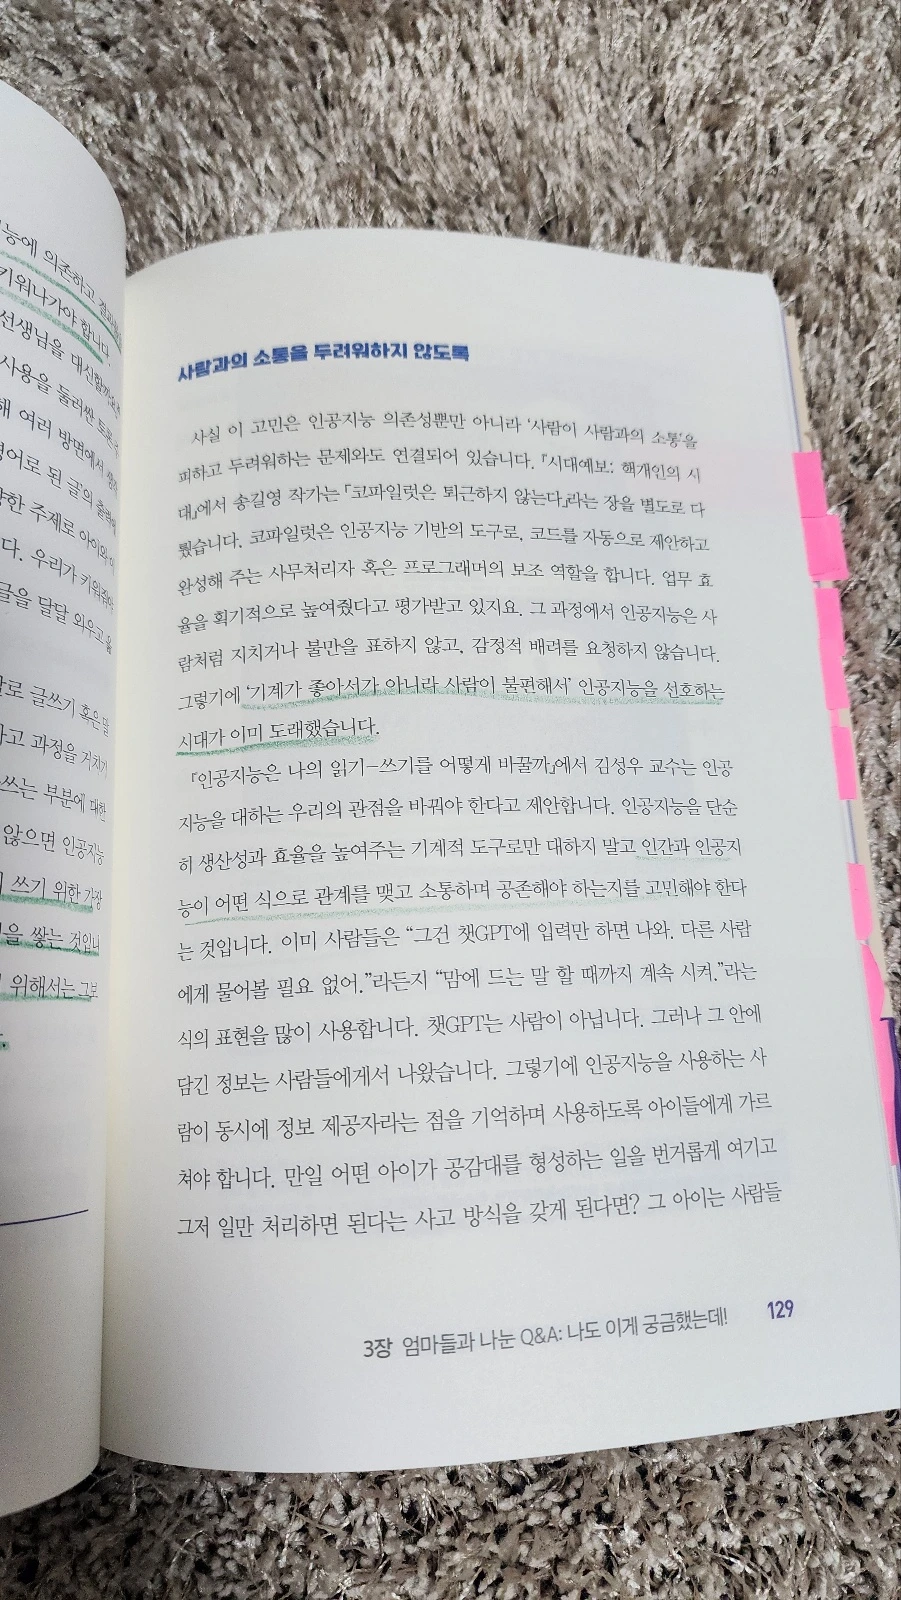 능에 의존하고
키워나가야 합니다.
선생님을 대신할
사용을 둘러싼
해 여러 방면에서
영어로 된 글의
양한 주제로 아이와
다. 우리가
글을 달달 외우고
로 글쓰기 혹은 말
고 과정을 거치기
쓰는 부분에 대한
않으면 인공지능
쓰기 위한 가장
을 쌓는 것입니
위해서는 그보
사람과의 소통을 두려워하지 않도록
사실 이 고민은 인공지능 의존성뿐만 아니라 ‘사람이 사람과의 소통’을
피하고 두려워하는 문제와도 연결되어 있습니다. 『시대예보: 핵개인의 시
대』에서 송길영 작가는 「코파일럿은 퇴근하지 않는다」라는 장을 별도로 다
뤘습니다. 코파일럿은 인공지능 기반의 도구로, 코드를 자동으로 제안하고
완성해 주는 사무처리자 혹은 프로그래머의 보조 역할을 합니다. 업무 효
율을 획기적으로 높여줬다고 평가받고 있지요. 그 과정에서 인공지능은 사
람처럼 지치거나 불만을 표하지 않고, 감정적 배려를 요청하지 않습니다.
그렇기에 ‘기계가 좋아서가 아니라 사람이 불편해서’ 인공지능을 선호하는
시대가 이미 도래했습니다.
『인공지능은 나의 읽기-쓰기를 어떻게 바꿀까』에서 김성우 교수는 인공
지능을 대하는 우리의 관점을 바꿔야 한다고 제안합니다. 인공지능을 단순
히 생산성과 효율을 높여주는 기계적 도구로만 대하지 말고 인간과 인공지
능이 어떤 식으로 관계를 맺고 소통하며 공존해야 하는지를 고민해야 한다
는 것입니다. 이미 사람들은 “그건 챗GPT에 입력만 하면 나와. 다른 사람
에게 물어볼 필요 없어.”라든지 “맘에 드는 말 할 때까지 계속 시켜.”라는
식의 표현을 많이 사용합니다. 챗GPT는 사람이 아닙니다. 그러나 그 안에
담긴 정보는 사람들에게서 나왔습니다. 그렇기에 인공지능을 사용하는 사
람이 동시에 정보 제공자라는 점을 기억하며 사용하도록 아이들에게 가르
쳐야 합니다. 만일 어떤 아이가 공감대를 형성하는 일을 번거롭게 여기고
그저 일만 처리하면 된다는 사고 방식을 갖게 된다면? 그 아이는 사람들
3장 엄마들과 나눈 Q&A: 나도 이게 궁금했는데!
129